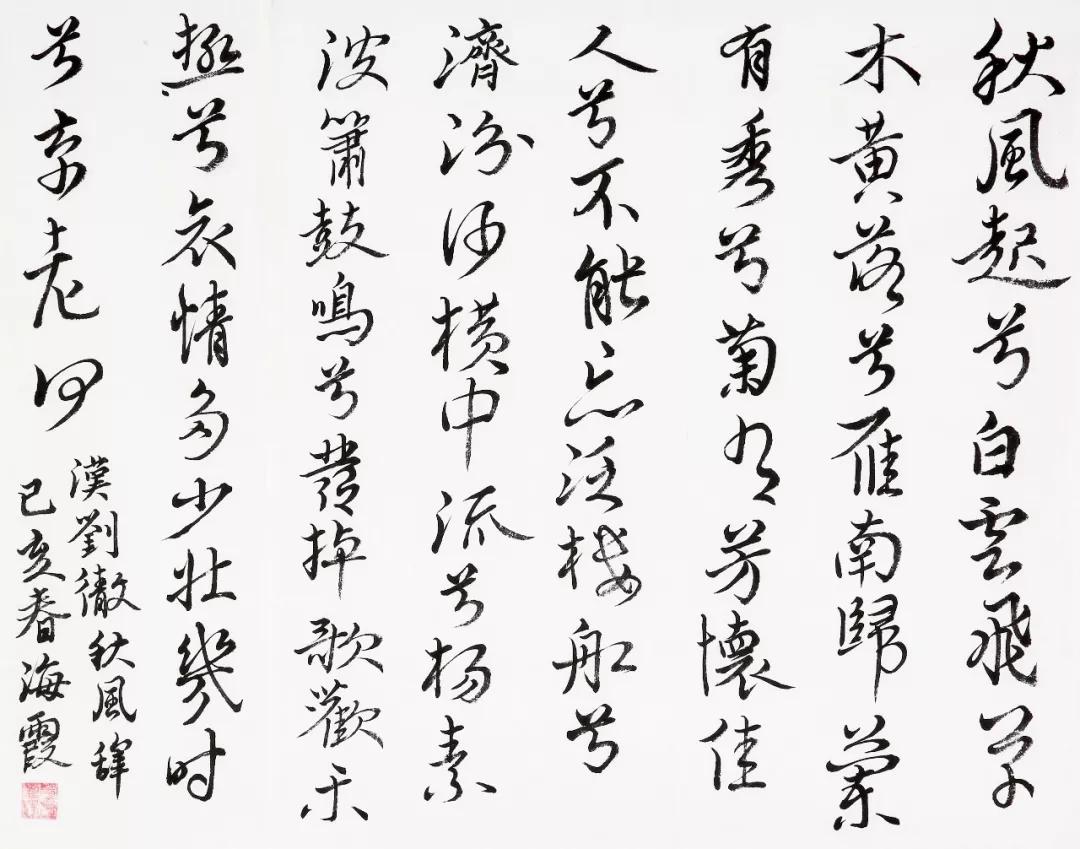 秋風起兮白雲飛草
木黄落兮雁南歸蘭
有秀兮菊有芳懷佳
人兮不能忘泛樓船兮
濟汾河橫中流兮揚素
波簫鼓鳴兮發棹歌歡樂
極兮哀情多少壯幾時
兮奈老何
漢劉徹秋風辭
己亥春海霞